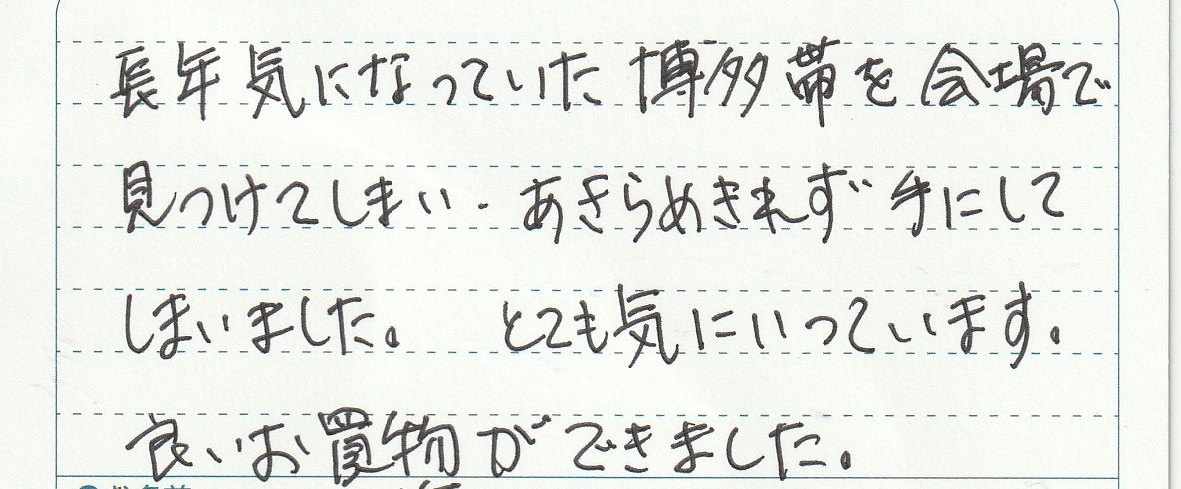 長年気になっていた博多帯を会場で
見つけてしまい、あきらめきれず手にして
しまいました。 とても気にいっています。
良いお買物ができました。